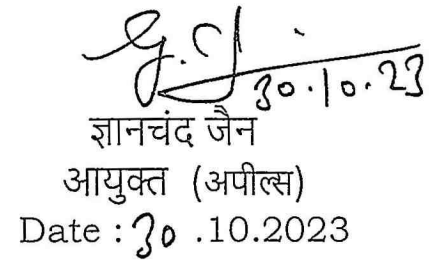 30.10.23
ज्ञानचंद जैन
आयुक्त (अपील्स)
Date : 30 .10.2023